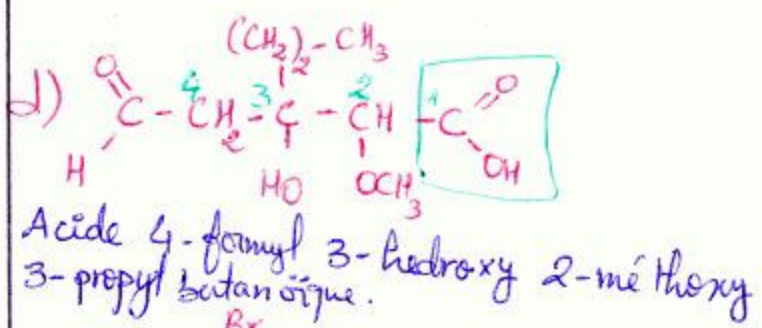 (CH2)2-CH3
d) O=C-CH2-C-CH-C=O
4 3 2 1
H HO OCH3 OH
Acide 4-formyl 3-hedroxy 2-méthoxy
3-propyl butanoïque.
Br